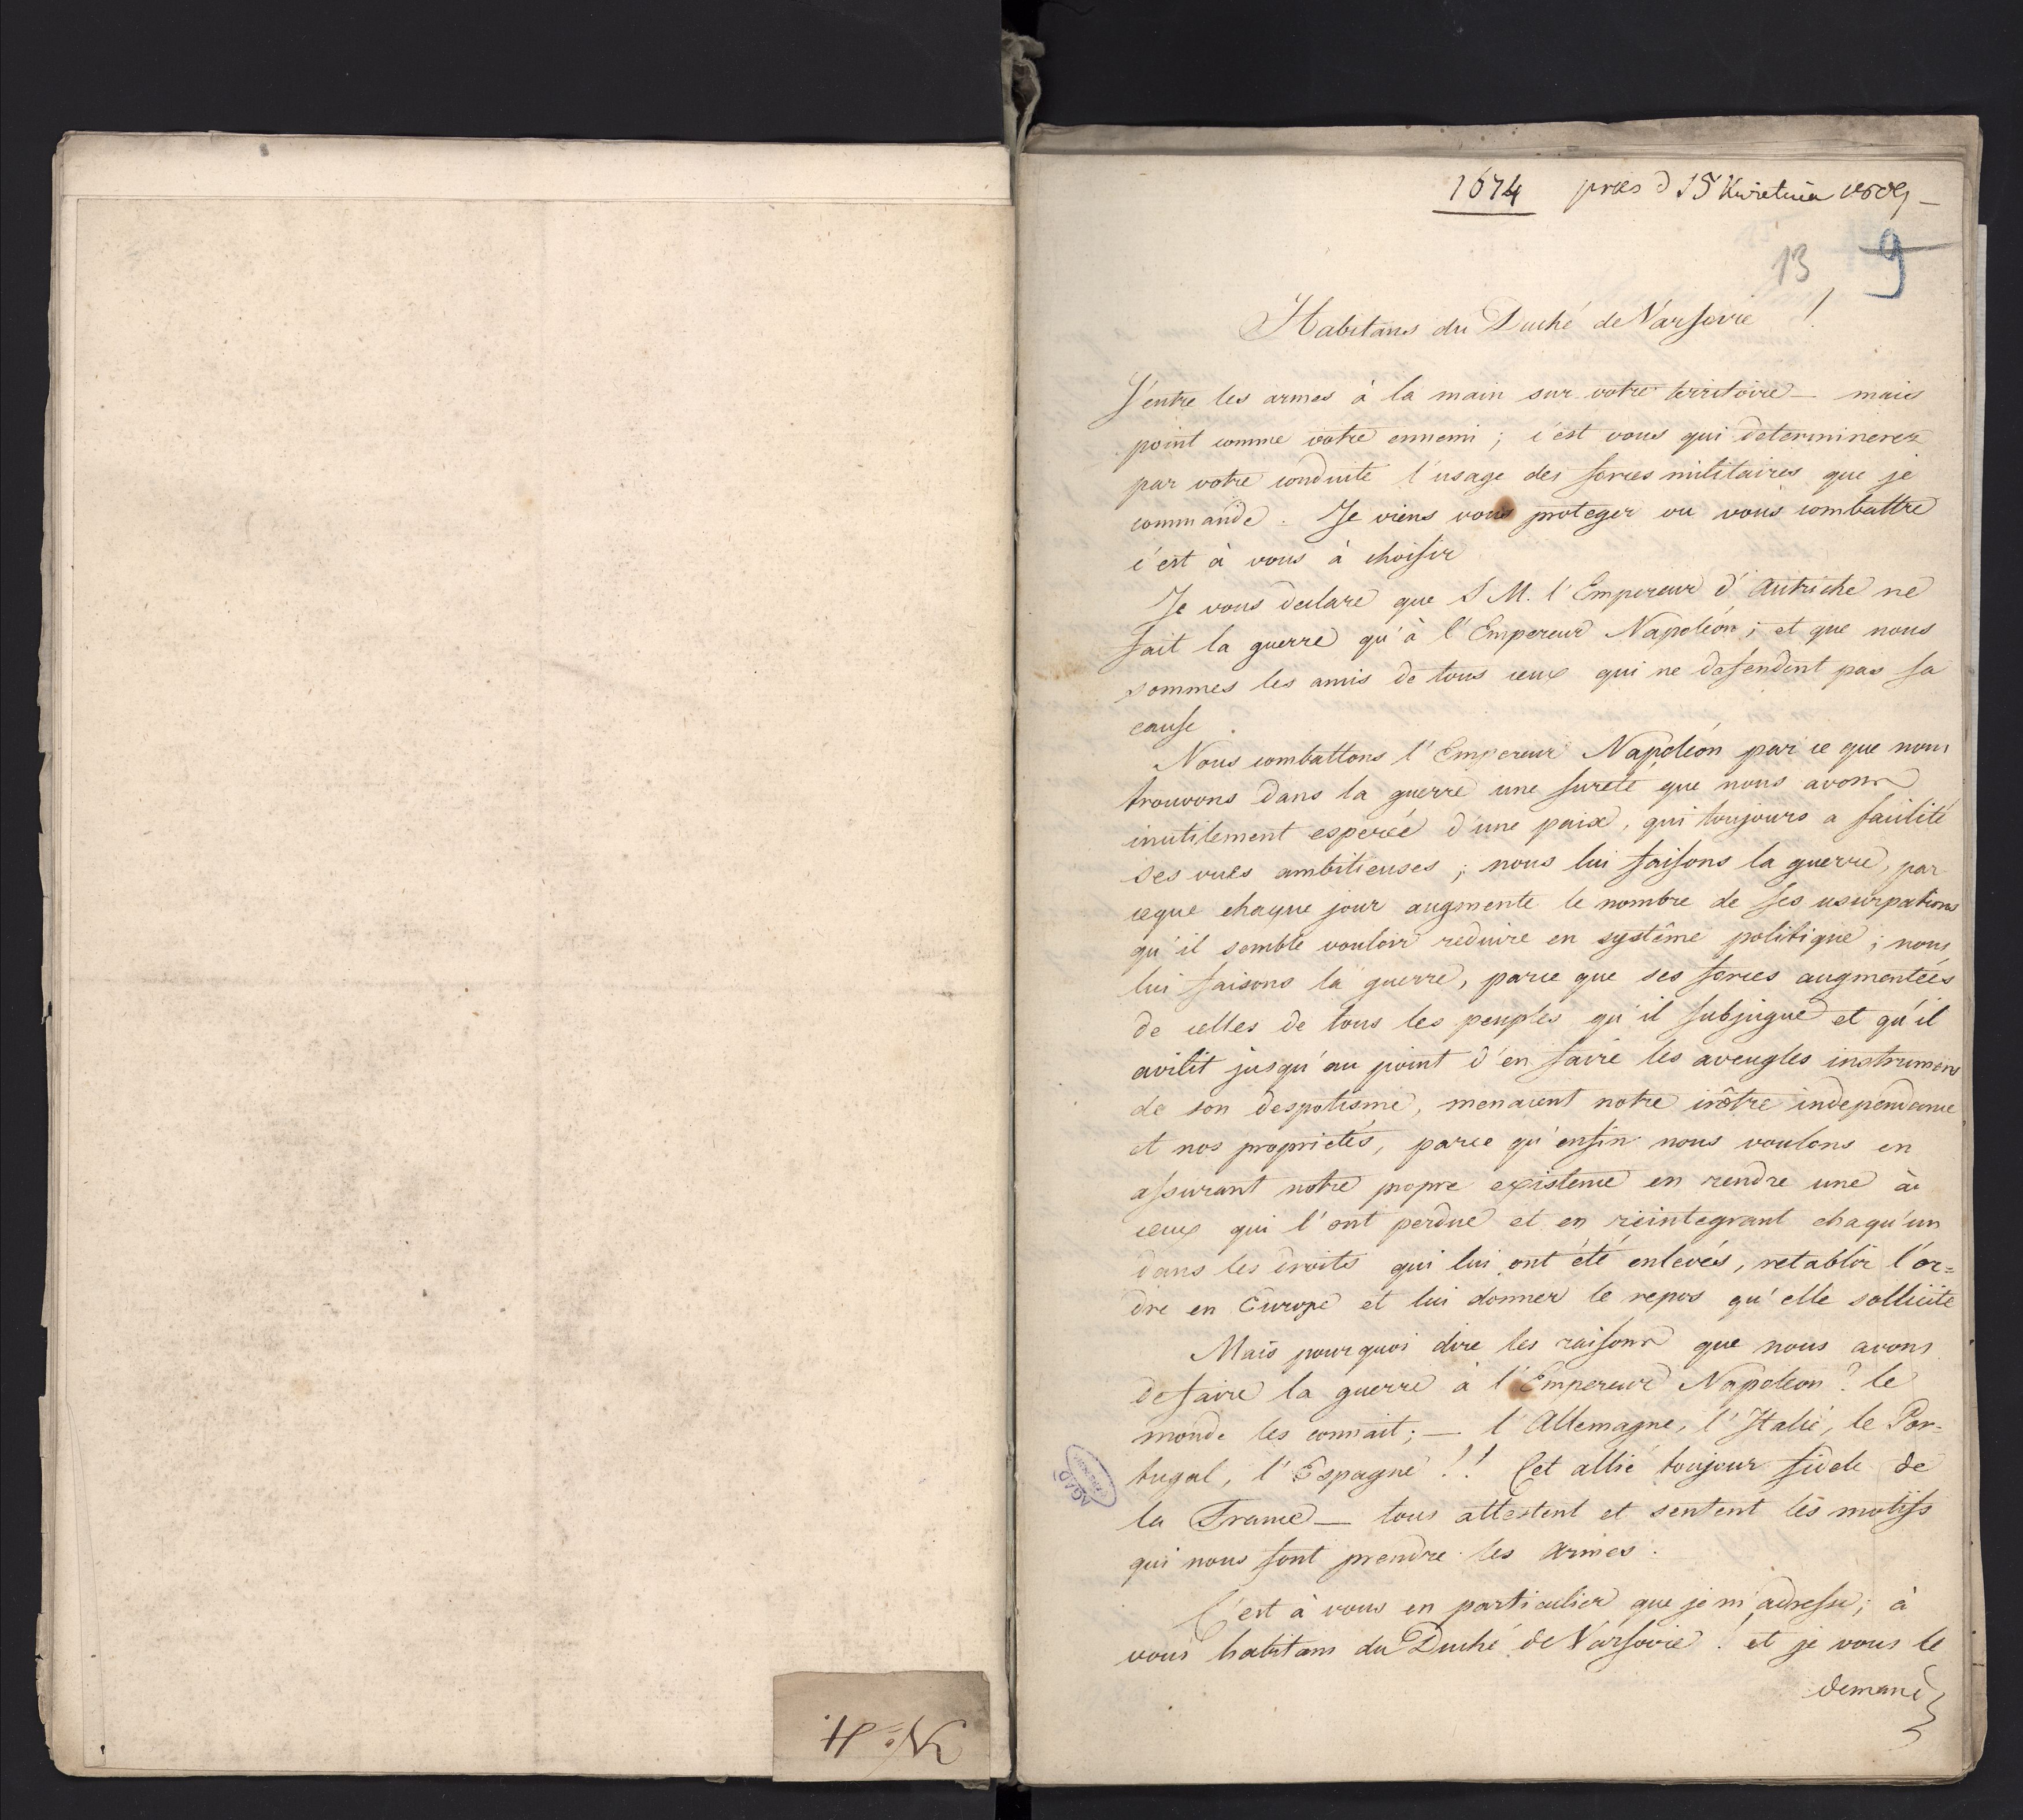 1674 præs d 15 Kwietnia 1809
13 9
Habitans du Duché de Varsovie !
J'entre les armes à la main sur votre territoire — mais
point comme votre ennemi ; c'est vous qui determinerez
par votre conduite l'usage des forces militaires que je
commande . Je viens vous proteger ou vous combattre
c'est à vous à choisir
Je vous declare que S M. l'Empereur d'Autriche ne
fait la guerre qu'à l'Empereur Napoléon ; et que nous
sommes les amis de tous ceux qui ne defendent pas sa
cause .
Nous combattons l'Empereur Napoléon par ce que nous
trouvons dans la guerre une sureté que nous avons
inutilement esperée d'une paix, qui toujours a facilité
ses vues ambitieuses ; nous lui faisons la guerre, par
ceque chaque jour augmente le nombre de ses usurpations
qu'il semble vouloir reduire en systême politique ; nous
lui faisons la guerre, parce que ses forces augmentées
de celles de tous les peuples qu'il subjugue et qu'il
avilit jusqu'au point d'en faire les aveugles instrumens
de son despotisme, menacent notre independance
et nos proprietés, parce qu'enfin nous voulons en
assurant notre propre existence en rendre une à
ceux qui l'ont perdue et en réintegrant chaqu'un
dans les droits qui lui ont été enlevés, retablir l'or=
dre en Europe et lui donner le repos qu'elle sollicite
Mais pourquoi dire les raisons que nous avons
de faire la guerre à l'Empereur Napoleon ? le
monde les connait ; — l'Allemagne, l'Italie, le Por=
tugal, l'Espagne !! Cet allié toujour fidele de
la France — tous attestent et sentent les motifs
qui nous font prendre les armes .
C'est à vous en particulier que je m'adresse ; à
vous habitans du Duché de Varsovie ! et je vous le
demande
AGAD
No 4.